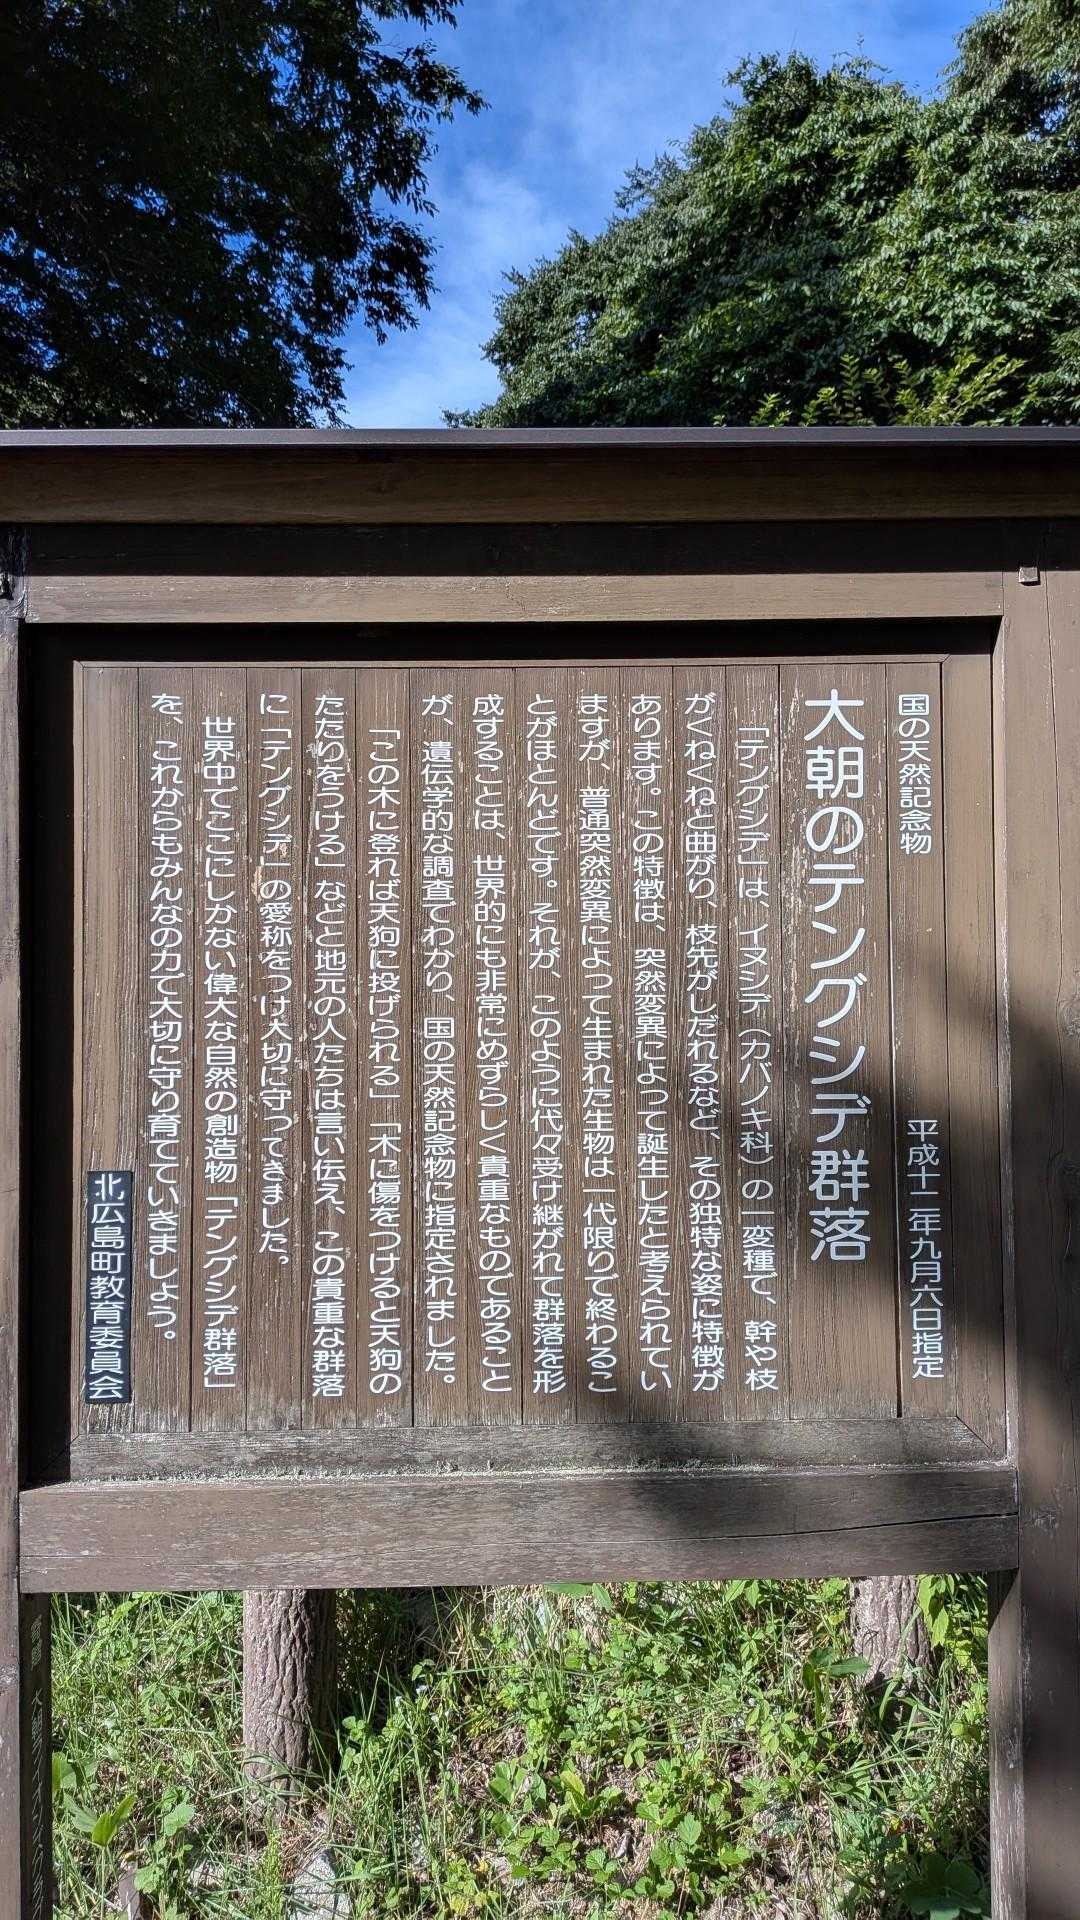 国の天然記念物
平成十二年九月六日指定
大朝のテングシデ群落
「テングシデ」は、イヌシデ（カバノキ科）の一変種で、幹や枝
がくねくねと曲がり、枝先がしだれるなど、その独特な姿に特徴が
あります。この特徴は、突然変異によって誕生したと考えられてい
ますが、普通突然変異によって生まれた生物は一代限りで終わるこ
とがほとんどです。それが、このように代々受け継がれて群落を形
成することは、世界的にも非常にめずらしく貴重なものであること
が、遺伝学的な調査でわかり、国の天然記念物に指定されました。
「この木に登れば天狗に投げられる」「木に傷をつけると天狗の
たたりをうける」などと地元の人たちは言い伝え、この貴重な群落
に「テングシデ」の愛称をつけ大切に守ってきました。
世界中でここにしかない偉大な自然の創造物「テングシデ群落」
を、これからもみんなの力で大切に守り育てていきましょう。
北広島町教育委員会